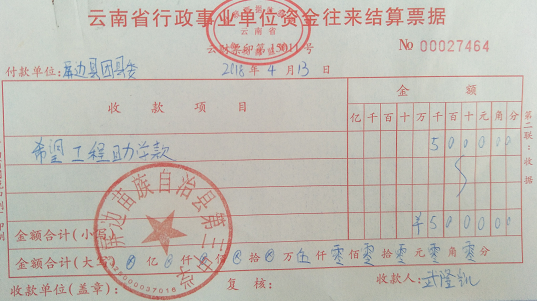 云南省行政事业单位资金往来结算票据
云财票印第15011号
№ 00027464
付款单位:屏边县团县委 2018 年 4 月 13 日
收款项目 金额
亿 千 百 十 万 千 百 十 元 角 分
希望工程助学款 5 0 0 0 0 0
金额合计(小写) ¥ 5 0 0 0 0 0
金额合计(大写) 亿 仟 佰 拾 万 伍 仟 零 佰 零 拾 零 元 零 角 零 分
收款单位(盖章): 复核: 收款人:
第二联:收据
屏边苗族自治县第三中学